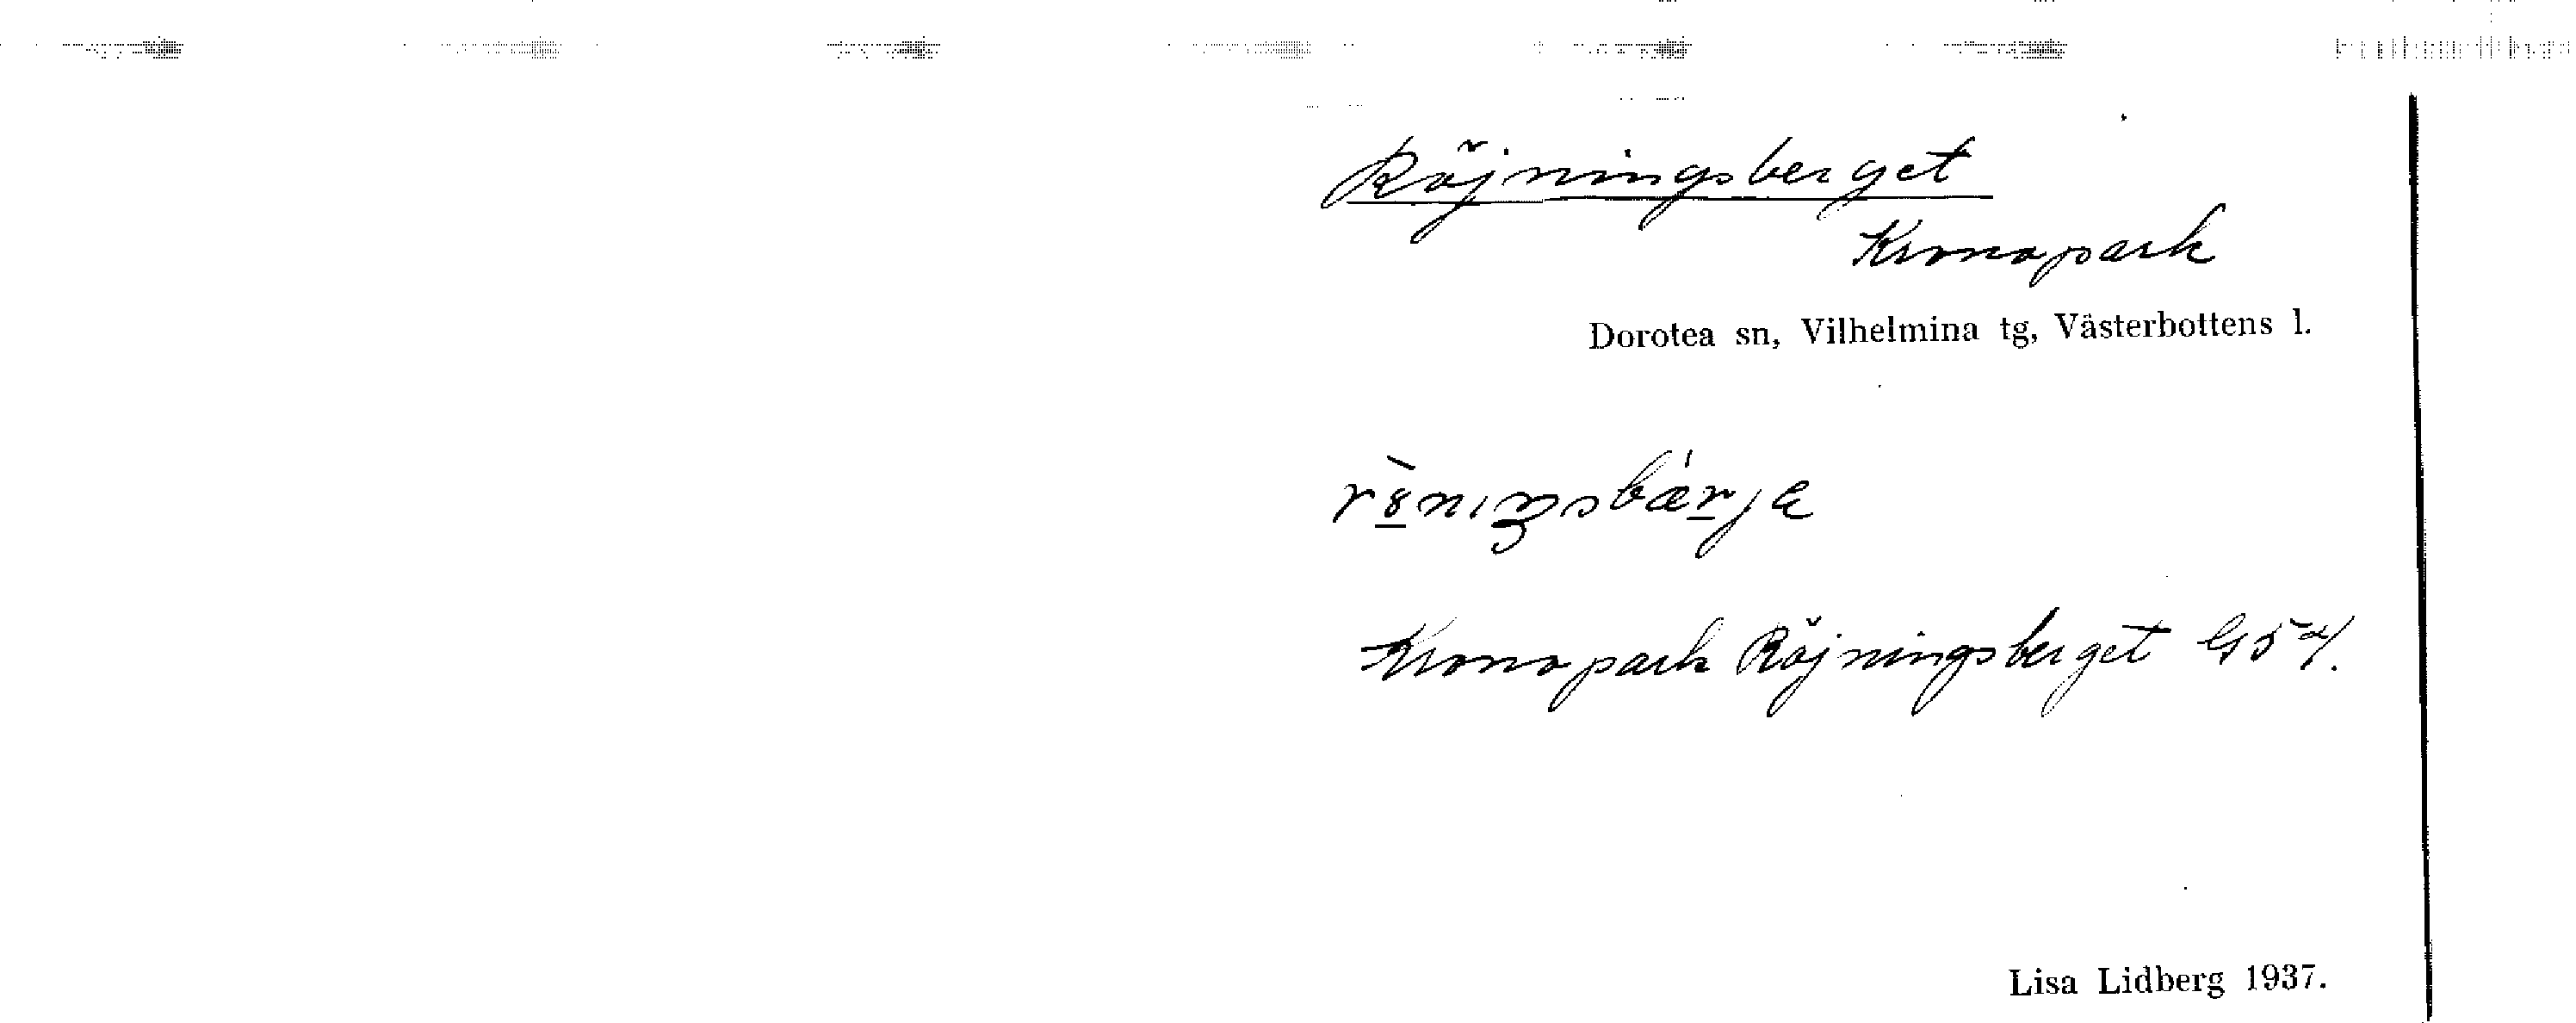 Röjningsberget
Kronopark
Dorotea sn, Vilhelmina tg, Västerbottens l.
Kronopark Röjningsberget
Lisa Lidberg 1937.